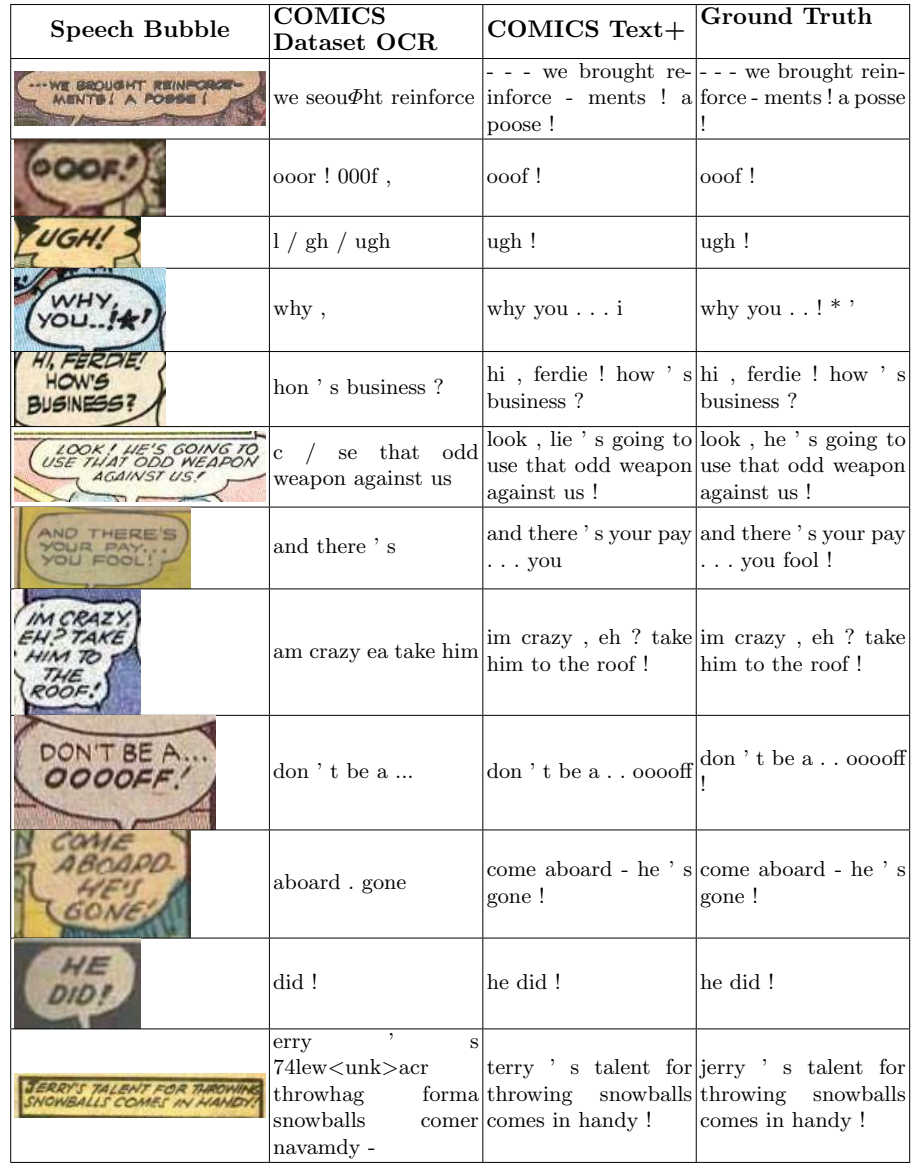 Speech Bubble
COMICS
Dataset OCR
COMICS Text+
Ground Truth
---WE BROUGHT REINFORCE-
MENTS! A POSSE!
we seouΦht reinforce
- - - we brought re-
inforce - ments ! a
poose !
- - - we brought rein-
force - ments ! a posse
!
OOOF!
ooor ! 000f ,
ooof !
ooof !
UGH!
l / gh / ugh
ugh !
ugh !
WHY,
YOU..!*'
why ,
why you . . . i
why you . . ! * ’
HI, FERDIE!
HOW'S
BUSINESS?
hon ’ s business ?
hi , ferdie ! how ’ s
business ?
hi , ferdie ! how ’ s
business ?
LOOK! HE'S GOING TO
USE THAT ODD WEAPON
AGAINST US!
c / se that odd
weapon against us
look , lie ’ s going to
use that odd weapon
against us !
look , he ’ s going to
use that odd weapon
against us !
AND THERE'S
YOUR PAY...
YOU FOOL!
and there ’ s
and there ’ s your pay
. . . you
and there ’ s your pay
. . . you fool !
IM CRAZY,
EH? TAKE
HIM TO
THE
ROOF!
am crazy ea take him
im crazy , eh ? take
him to the roof !
im crazy , eh ? take
him to the roof !
DON'T BE A...
OOOOFF!
don ’ t be a ...
don ’ t be a . . ooooff
don ’ t be a . . ooooff
!
COME
ABOARD-
HE'S
GONE!
aboard . gone
come aboard - he ’ s
gone !
come aboard - he ’ s
gone !
HE
DID!
did !
he did !
he did !
JERRY'S TALENT FOR THROWING
SNOWBALLS COMES IN HANDY!
erry ’ s
74lew<unk>acr
throwhag forma
snowballs comer
navamdy -
terry ’ s talent for
throwing snowballs
comes in handy !
jerry ’ s talent for
throwing snowballs
comes in handy !